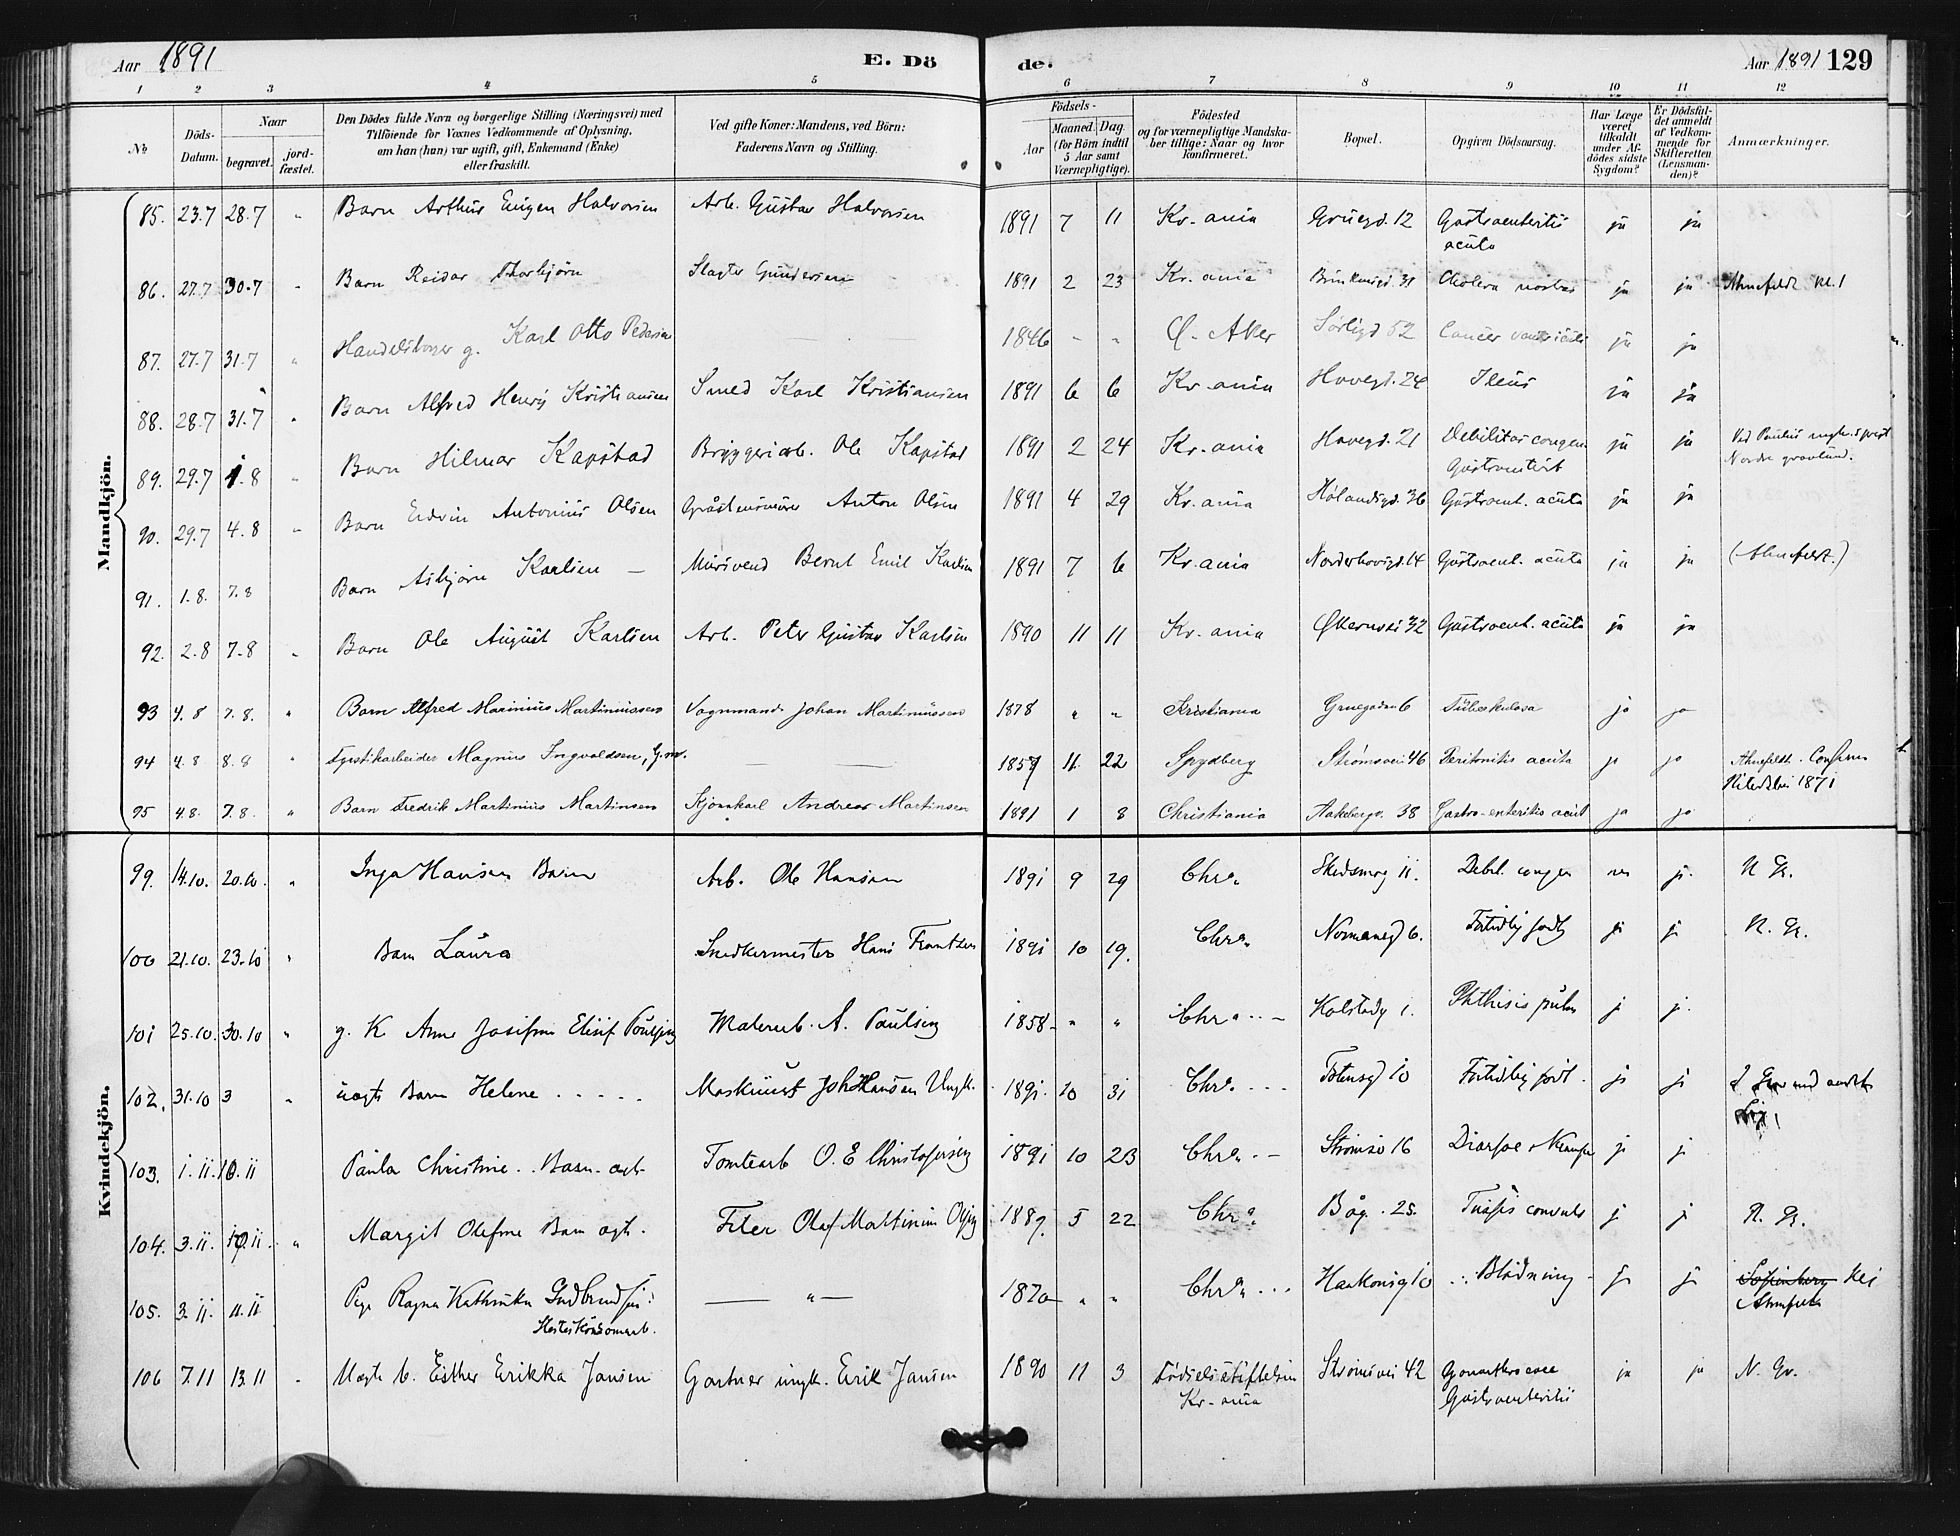 Aar 1891 E. Dö de. Aar 1891 129
1 2 3 4 5 6 7 8 9 10 11 12
No
Döds-Datum.
Naar
begravet.
jord-fæstet.
Den Dödes fulde Navn og borgerlige Stilling (Næringsvei) med
Tilföiende for Voxnes Vedkommende af Oplysning,
om han (hun) var ugift, gift, Enkemand (Enke)
eller fraskilt.
Ved gifte Koner: Mandens, ved Börn:
Faderens Navn og Stilling.
Födsels-
Aar
Maaned. Dag
(for Börn indtil
5 Aar samt
Værnepligtige).
Födested
og for værnepligtige Mandska-
ber tillige: Naar og hvor
konfirmeret.
Bopæl.
Opgiven Dödsaarsag.
Har Læge
været
tilkaldt
under Af-
dödes sidste
Sygdom?
Er Dödsfal-
det anmeldt
af Vedkom-
mende for
Skifteretten
(Lensman-
den)?
Anmærkninger.
Mandkjön.
85. 23.7 28.7 " Barn Arthur Eugen Halvorsen Arb. Gustav Halvorsen 1891 7 11 Kr.ania Gruegd. 12 Gastroenteritis acuta ja ja
86. 27.7 30.7 " Barn Reidar Thorbjørn Slagter Gundersen 1891 2 23 Kr.ania 31 Cholera nostras ja ja Ahnefeldt kl. 1
87. 27.7 31.7 " g. Karl Otto Pedersen 1846 " " Ø. Aker Sørligd 52 Cancer ja ja
88. 28.7 31.7 " Barn Alfred Henry Kristiansen Smed Karl Kristiansen 1891 6 6 Kr.ania Havegd. 24 Ileus ja ja
89. 29.7 1.8 " Barn Hilmar Kapstad Bryggeriarb. Ole Kapstad 1891 2 24 Kr.ania Havegd. 21 Debilitas congen. Gastroenterit ja ja Ved Paulus Nordre gravlund.
90. 29.7 4.8 " Barn Edvin Antonius Olsen Anton Olsen 1891 4 29 Kr.ania Hølandsgd. 36 Gastroent. acuta ja ja
91. 1.8. 7.8 Barn Asbjørn Karlsen — Mursvend Bernt Emil Karlsen 1891 7 6 Kr.ania Norderhovsgd. 14 Gastroent. acuta ja ja (Ahnefeldt.)
92. 2.8 7.8 " Barn Ole August Karlsen Arb. Peter Gustav Karlsen 1890 11 11 Kr.ania Økernvei 32 Gastroent. acuta ja ja
93 4.8 7.8. " Barn Alfred Marinius Martinussen Vognmand Johan Martinussen 1878 " " Kristiania Gruegaden 6 Tuberkulosa ja ja
94 4.8 8.8 " Magnus Ingvaldsen, G.m. 1857 11. 22 Spydberg Strømsvei 46 Peritonitis acuta ja ja Ahnefeldt. 1871
95 4.8. 7.8. " Barn Fredrik Martinius Martinsen Kjørekarl Andreas Martinsen 1891 1 8 Christiania Hakebergv. 38 Gastro-enteritis acut ja ja
Kvindekjön.
99. 14.10. 20.10. " Inga Hansen Barn Arb. Ole Hansen 1891 9 29 Chra. Skedsmog 11. Debil. congen ja N. Gr.
100 21.10. 23.10 " Barn Laura Snedkermester Hans Frantzen 1891 10 19. Chra. Normanngd 6. Fortidlig født ja ja N. Gr.
101 25.10. 30.10 " g. K Anne Josefine Elisif Paulsen Malerarb. A. Paulsen 1858 " " Chra. Kolstadg 1. Phthisis pulm ja ja
102. 31.10 3 " uægte Barn Helene Maskinist Joh Hansen Ungk. 1891. 10 31 Chra. Totensgd 10 Fortidlig født. ja ja
103. 1.11. 10.11 Paula Christine Barn ægt Tomtearb O. E Christofersen 1891 10 23 Chra. Strømsv 16 Diarhoe ja ja
104. 3.11. 10.11 " Margit Olefine Barn ægt. Filer Olaf Martinius Olsen 1889. 5 22 Chra. Båg. 25. Tussis convuls ja ja N. Gr.
105. 3.11. 11.11 Pige Ragna Kathinka Gudbrandsen — " — 1870 " " Chra. Haakonsg 10 Blødning ja ja Sofienberg Ahnefeldt
106 7.11 13.11 " Uægte b. Esther Erikka Jansen Gartner ungk. Erik Jansen 1890 11 3 Fødselsstiftelsen Kr.ania Strømsvei 42 Gonarthrocace Gastroenteritis ja ja N. Gr.